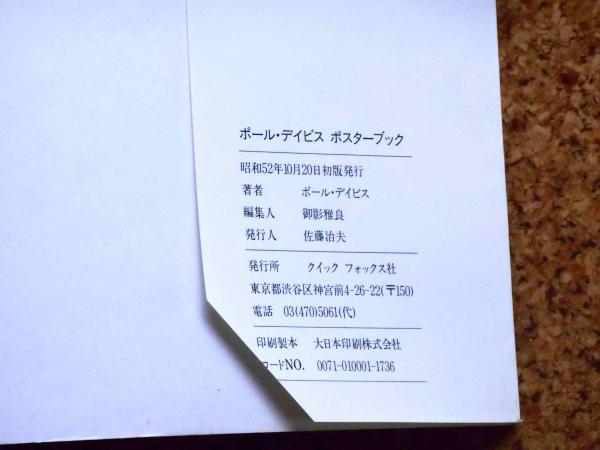 ポール・デイビス ポスターブック
昭和52年10月20日初版発行
著者 ポール・デイビス
編集人 御影雅良
発行人 佐藤治夫
発行所 クイック フォックス社
東京都渋谷区神宮前4-26-22(〒150)
電話 03(470)5061(代)
印刷製本 大日本印刷株式会社
コードNO. 0071-010001-1736